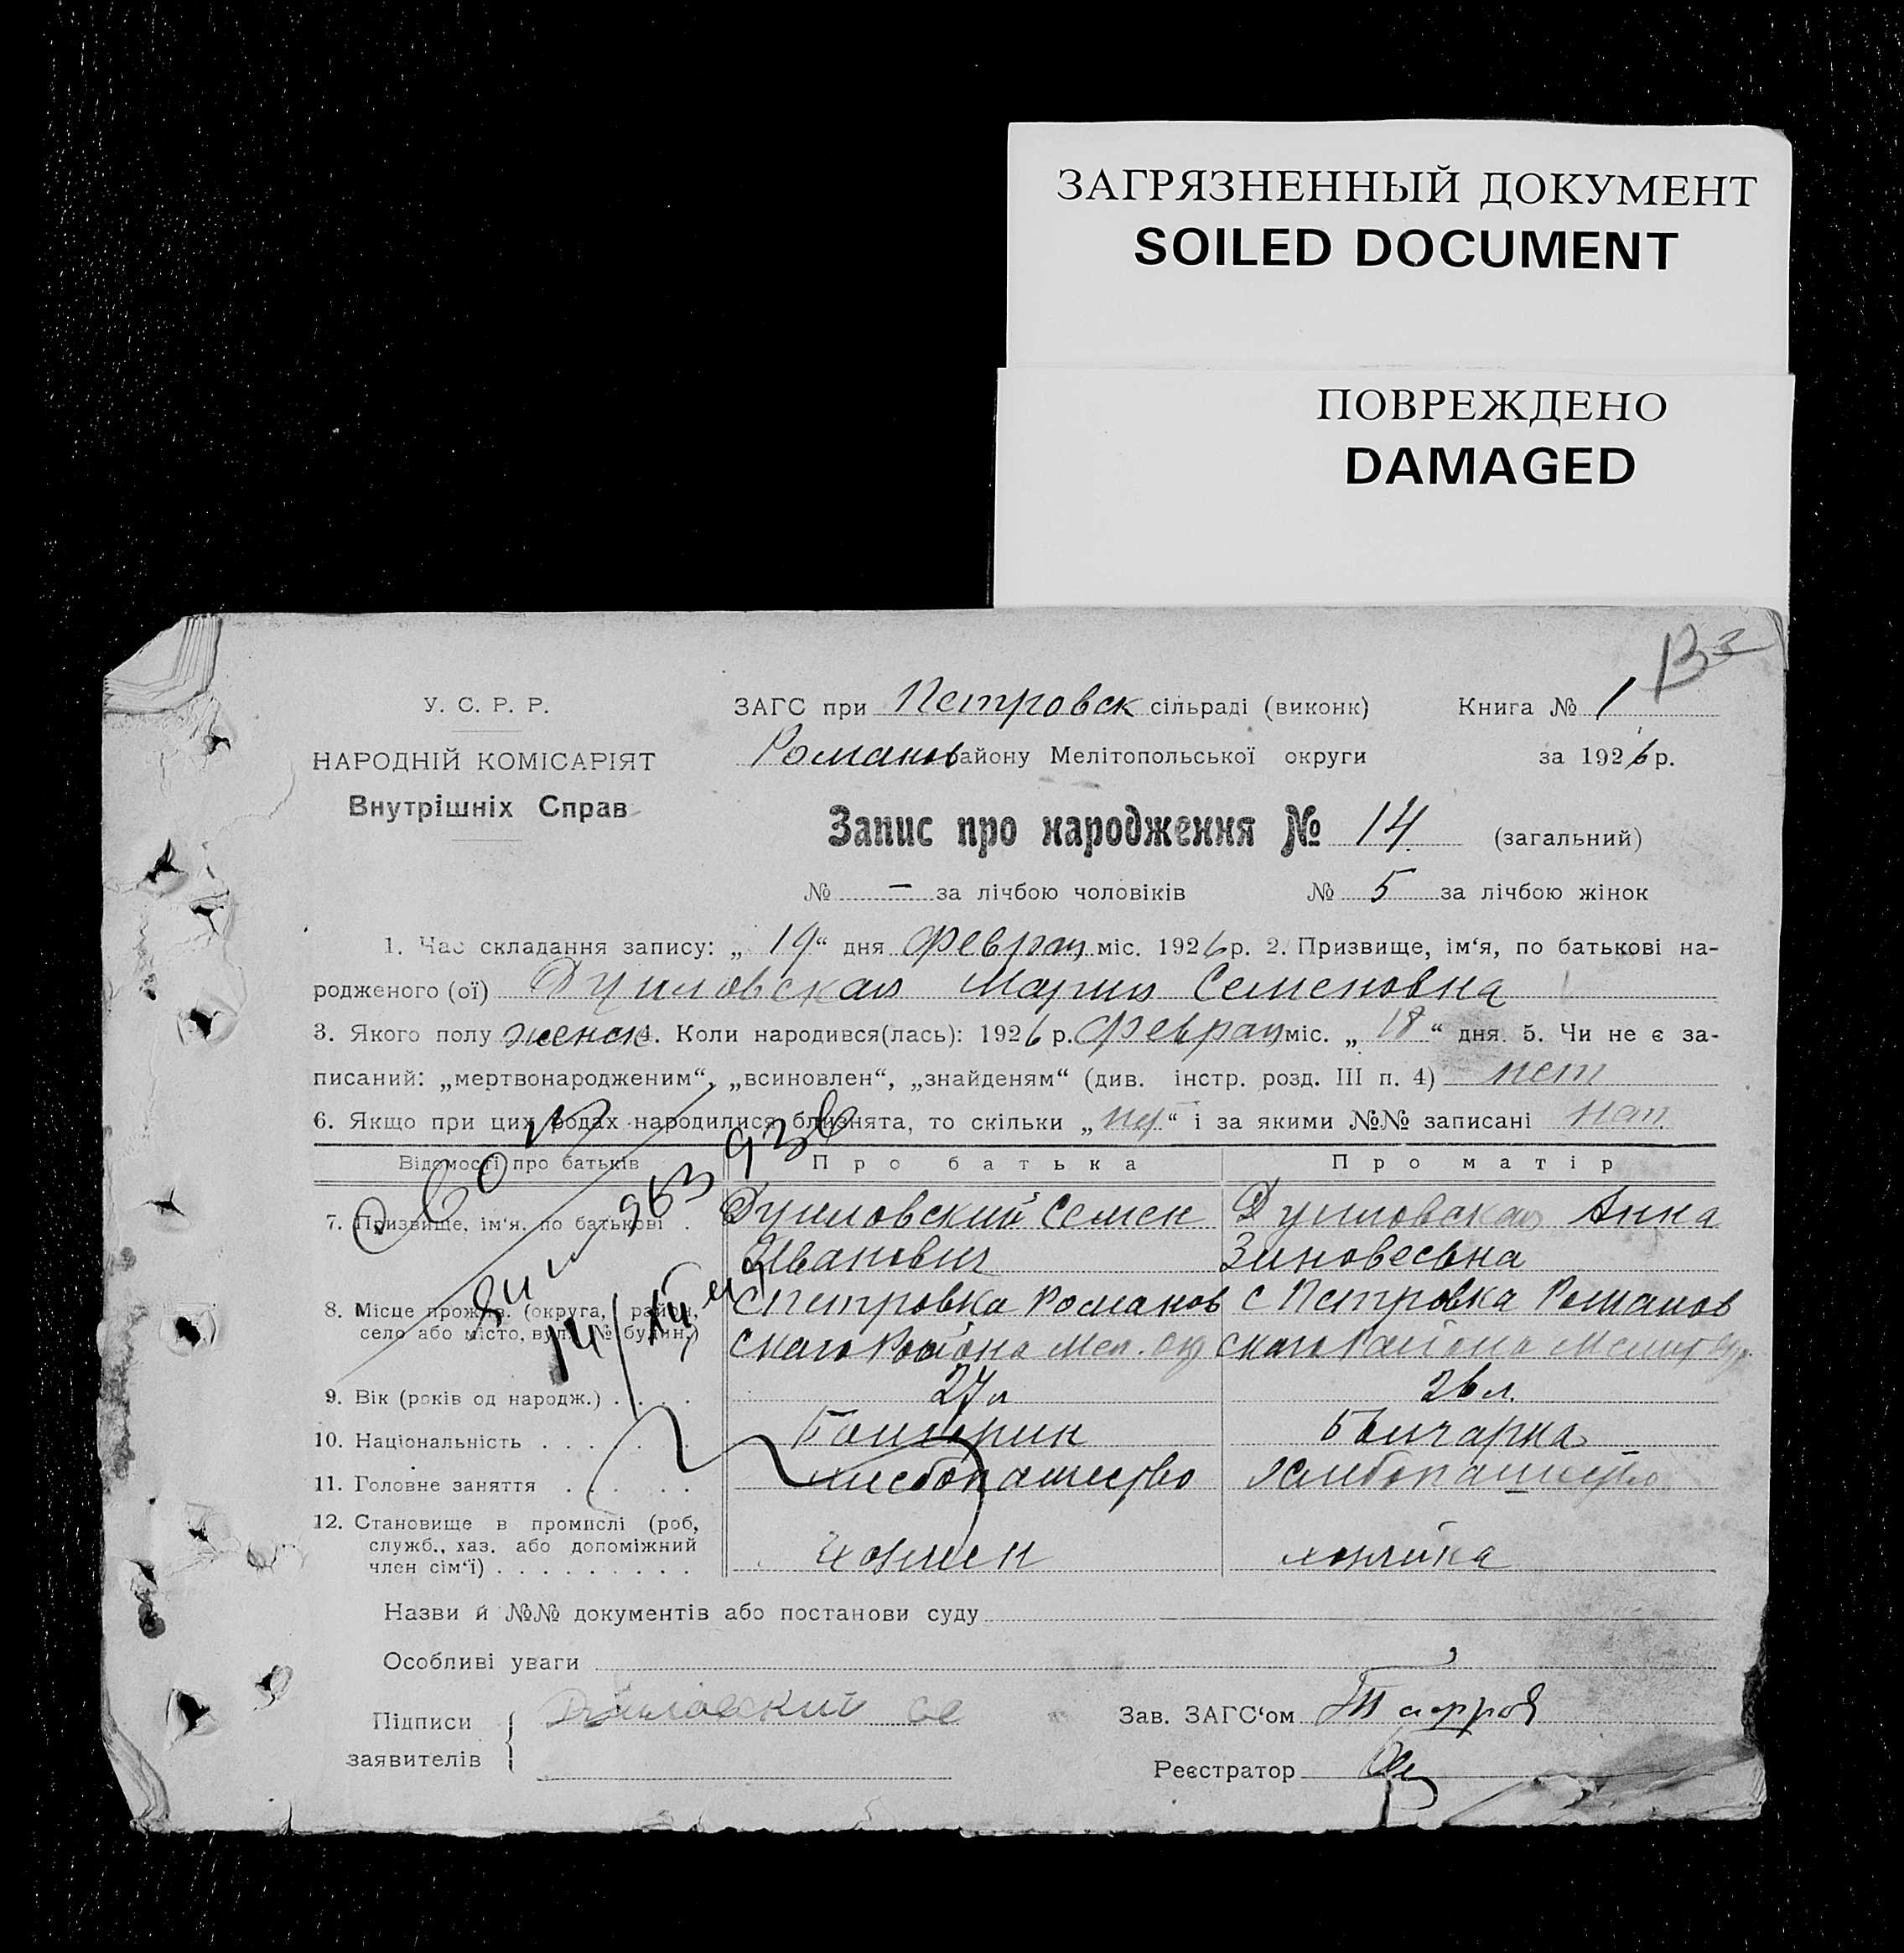 ЗАГРЯЗНЕННЫЙ ДОКУМЕНТ
SOILED DOCUMENT
ПОВРЕЖДЕНО
DAMAGED
У. С. Р. Р.
НАРОДНІЙ КОМІСАРІЯТ
Внутрішніх Справ
ЗАГС при Петровск сільраді (виконк) Книга № 1
Романов району Мелітопольської округи за 1926 р.
Запис про народження № 14 (загальний)
№ — за лічбою чоловіків № 5 за лічбою жінок
1. Час складання запису: „ 19 “ дня Феврал міс. 1926 р. 2. Призвище, ім‘я, по батькові на-
родженого (ої) Мария Семеновна
3. Якого полу женск 4. Коли народився(лась): 1926 р. Феврал міс. „ 18 “ дня 5. Чи не є за-
писаний: „мертвонародженим“, „всиновлен“, „знайденям“ (див. інстр. розд. III п. 4) нет
6. Якщо при цих родах народилися близнята, то скільки „ “ і за якими №№ записані
Відомості про батьків Про батька Про матір
7. Призвище, ім‘я, по батькові Семен Анна
Иванович Зиновеевна
8. Місце прожив. (округа, район, с Петровка Романов с Петровка Романов
село або місто, вул. № будин.) скаго Района Мел. окр скаго Района Мелит окр.
9. Вік (років од народж.) 27 л 26 л.
10. Національність Болгарин Болгарка
11. Головне заняття хлебопашество хлебопашество
12. Становище в промислі (роб,
служб., хаз. або допоміжний
член сім‘ї) хозяйка
Назви й №№ документів або постанови суду
Особливі уваги
Підписи
заявителів
Зав. ЗАГС‘ом
Реєстратор